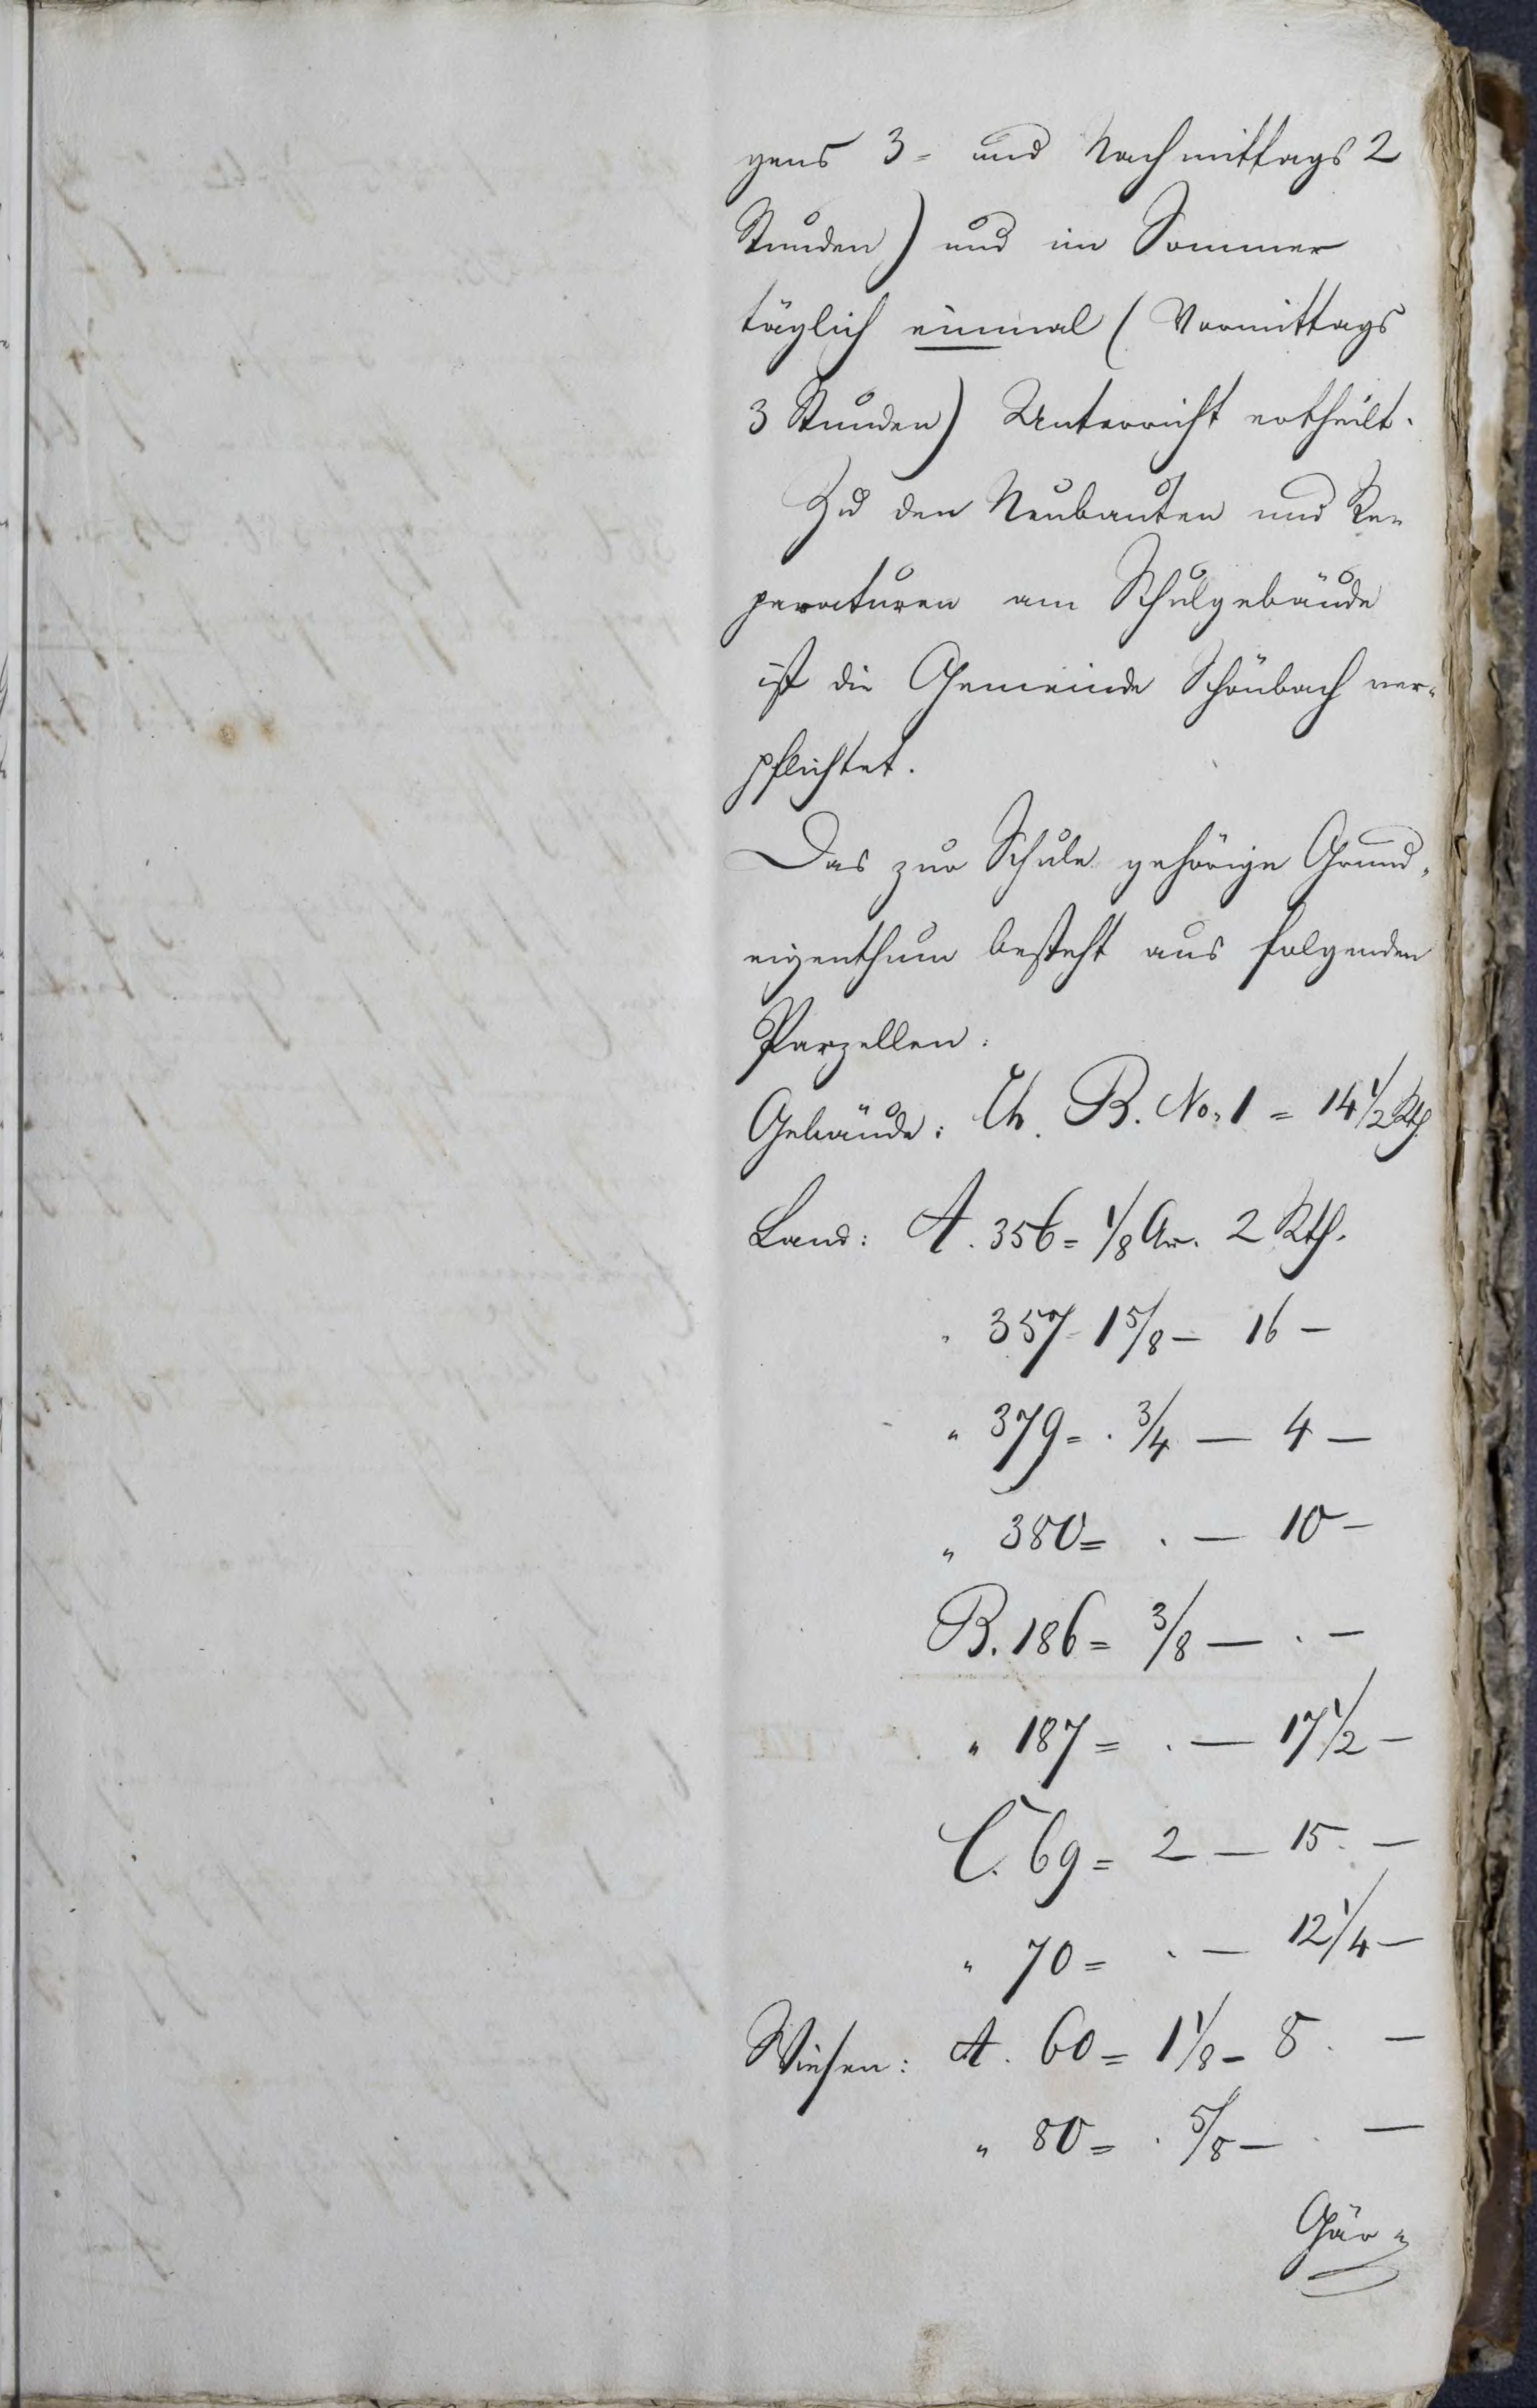 gens 3 = und Nachmittags 2
Stunden) und im Sommer
täglich einmal (Vormittags
3 Stunden) Unterricht ertheilt.
Zu den Neubauten und Re=
paraturen am Schulgebäude
ist die Gemeinde Schönbach ver=
pflichtet.
Das zur Schule gehörige Grund=
eigenthum besteht aus folgenden
Parzellen:
Gebäude: Lit. B. No. 1 = 14 1/2 Rth.
Land: A. 356 = 1/8 Ar. 2 Rth.
" 357 = 1 5/8 — 16 —
" 379 = . 3/4 — 4 —
" 380 = . — 10 —
B. 186 = 3/8 — . —
" 187 = . — 17 1/2 —
C. 69 = 2 — 15. —
" 70 = . — 12 1/4 —
Wiesen: A. 60 = 1 1/8 — 8. —
" 80 = . 5/8 — . —
Gär=